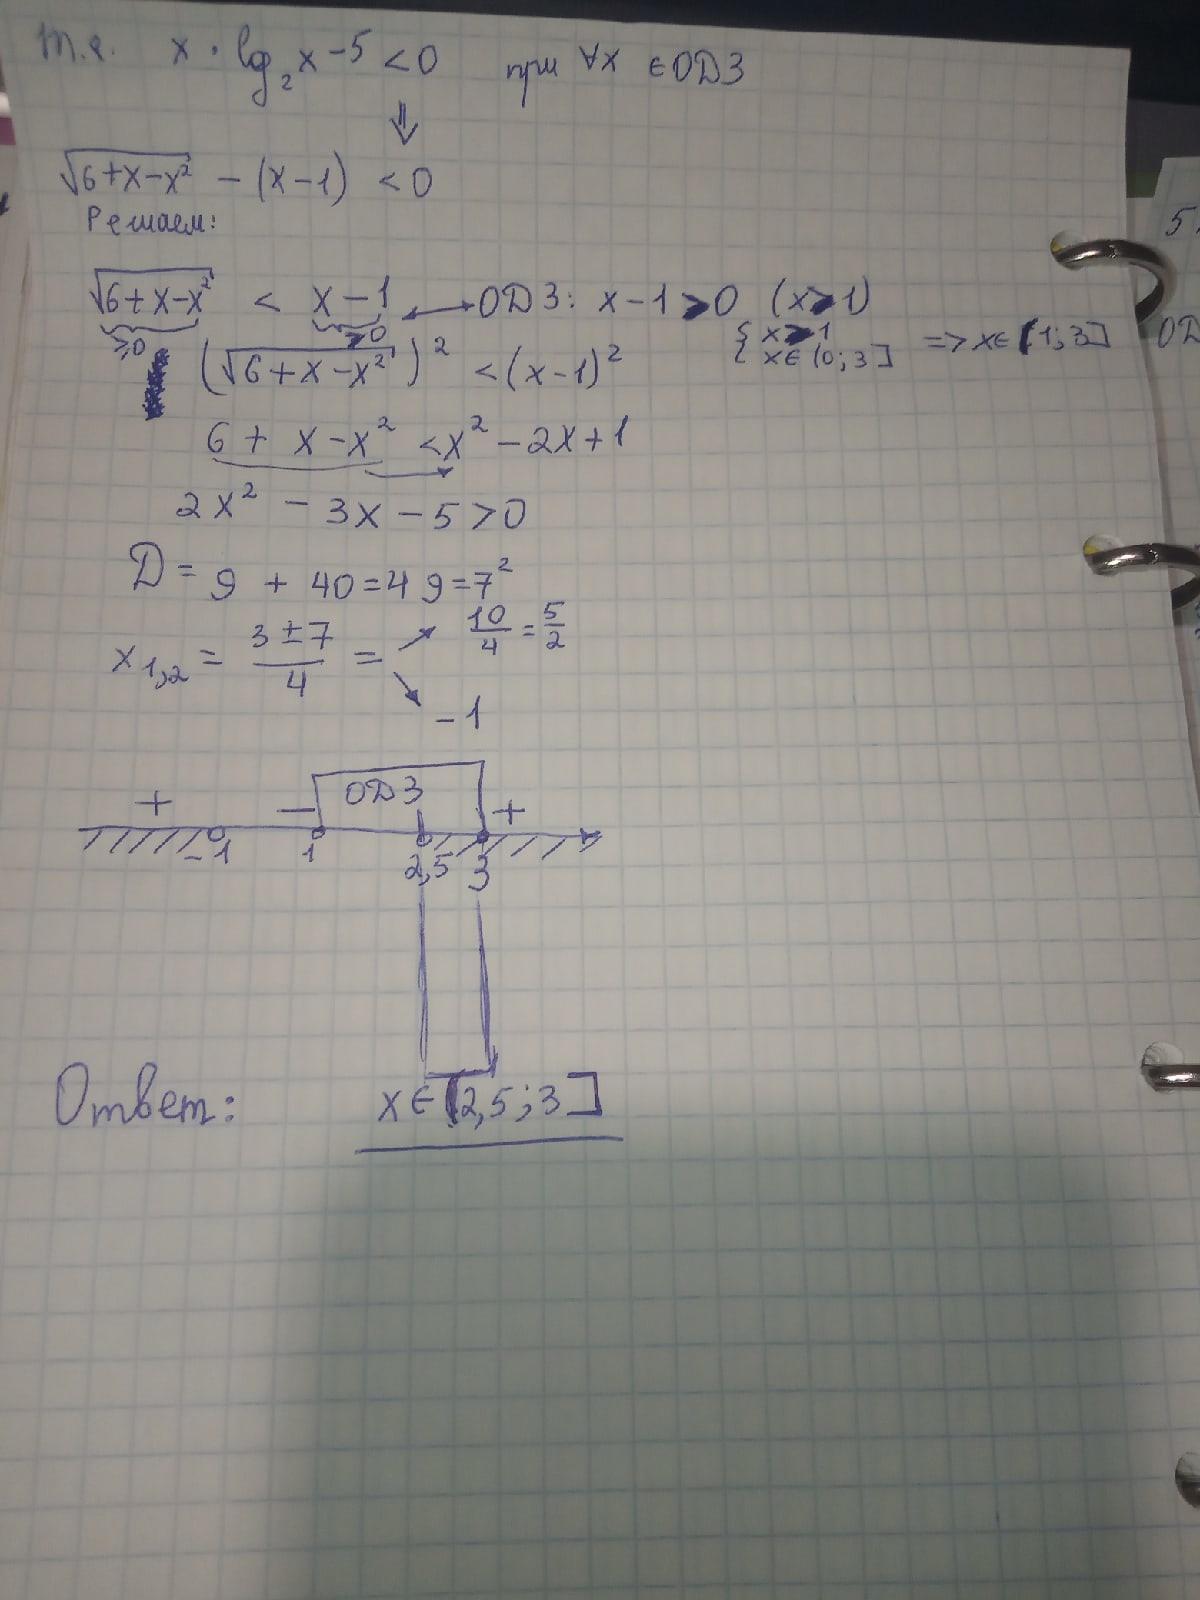 т.к. x · log₂x − 5 < 0 при ∀x ∈ ОДЗ
⇓
√(6+x−x²) − (x−1) < 0
Решаем:
√(6+x−x²) < x−1 ⟷ ОДЗ: x−1>0 (x>1)
≥0 >0 { x>1
{ x∈(0;3] => x∈(1;3]
(√(6+x−x²))² < (x−1)²
6 + x−x² < x² − 2x+1
2x² − 3x − 5 > 0
D = 9 + 40 = 49 = 7²
x₁,₂ = (3±7)/4 = ↗ 10/4 = 5/2
↘ −1
+ − ОДЗ +
−1 1 2,5 3
Ответ: x∈(2,5;3]
5
ОД